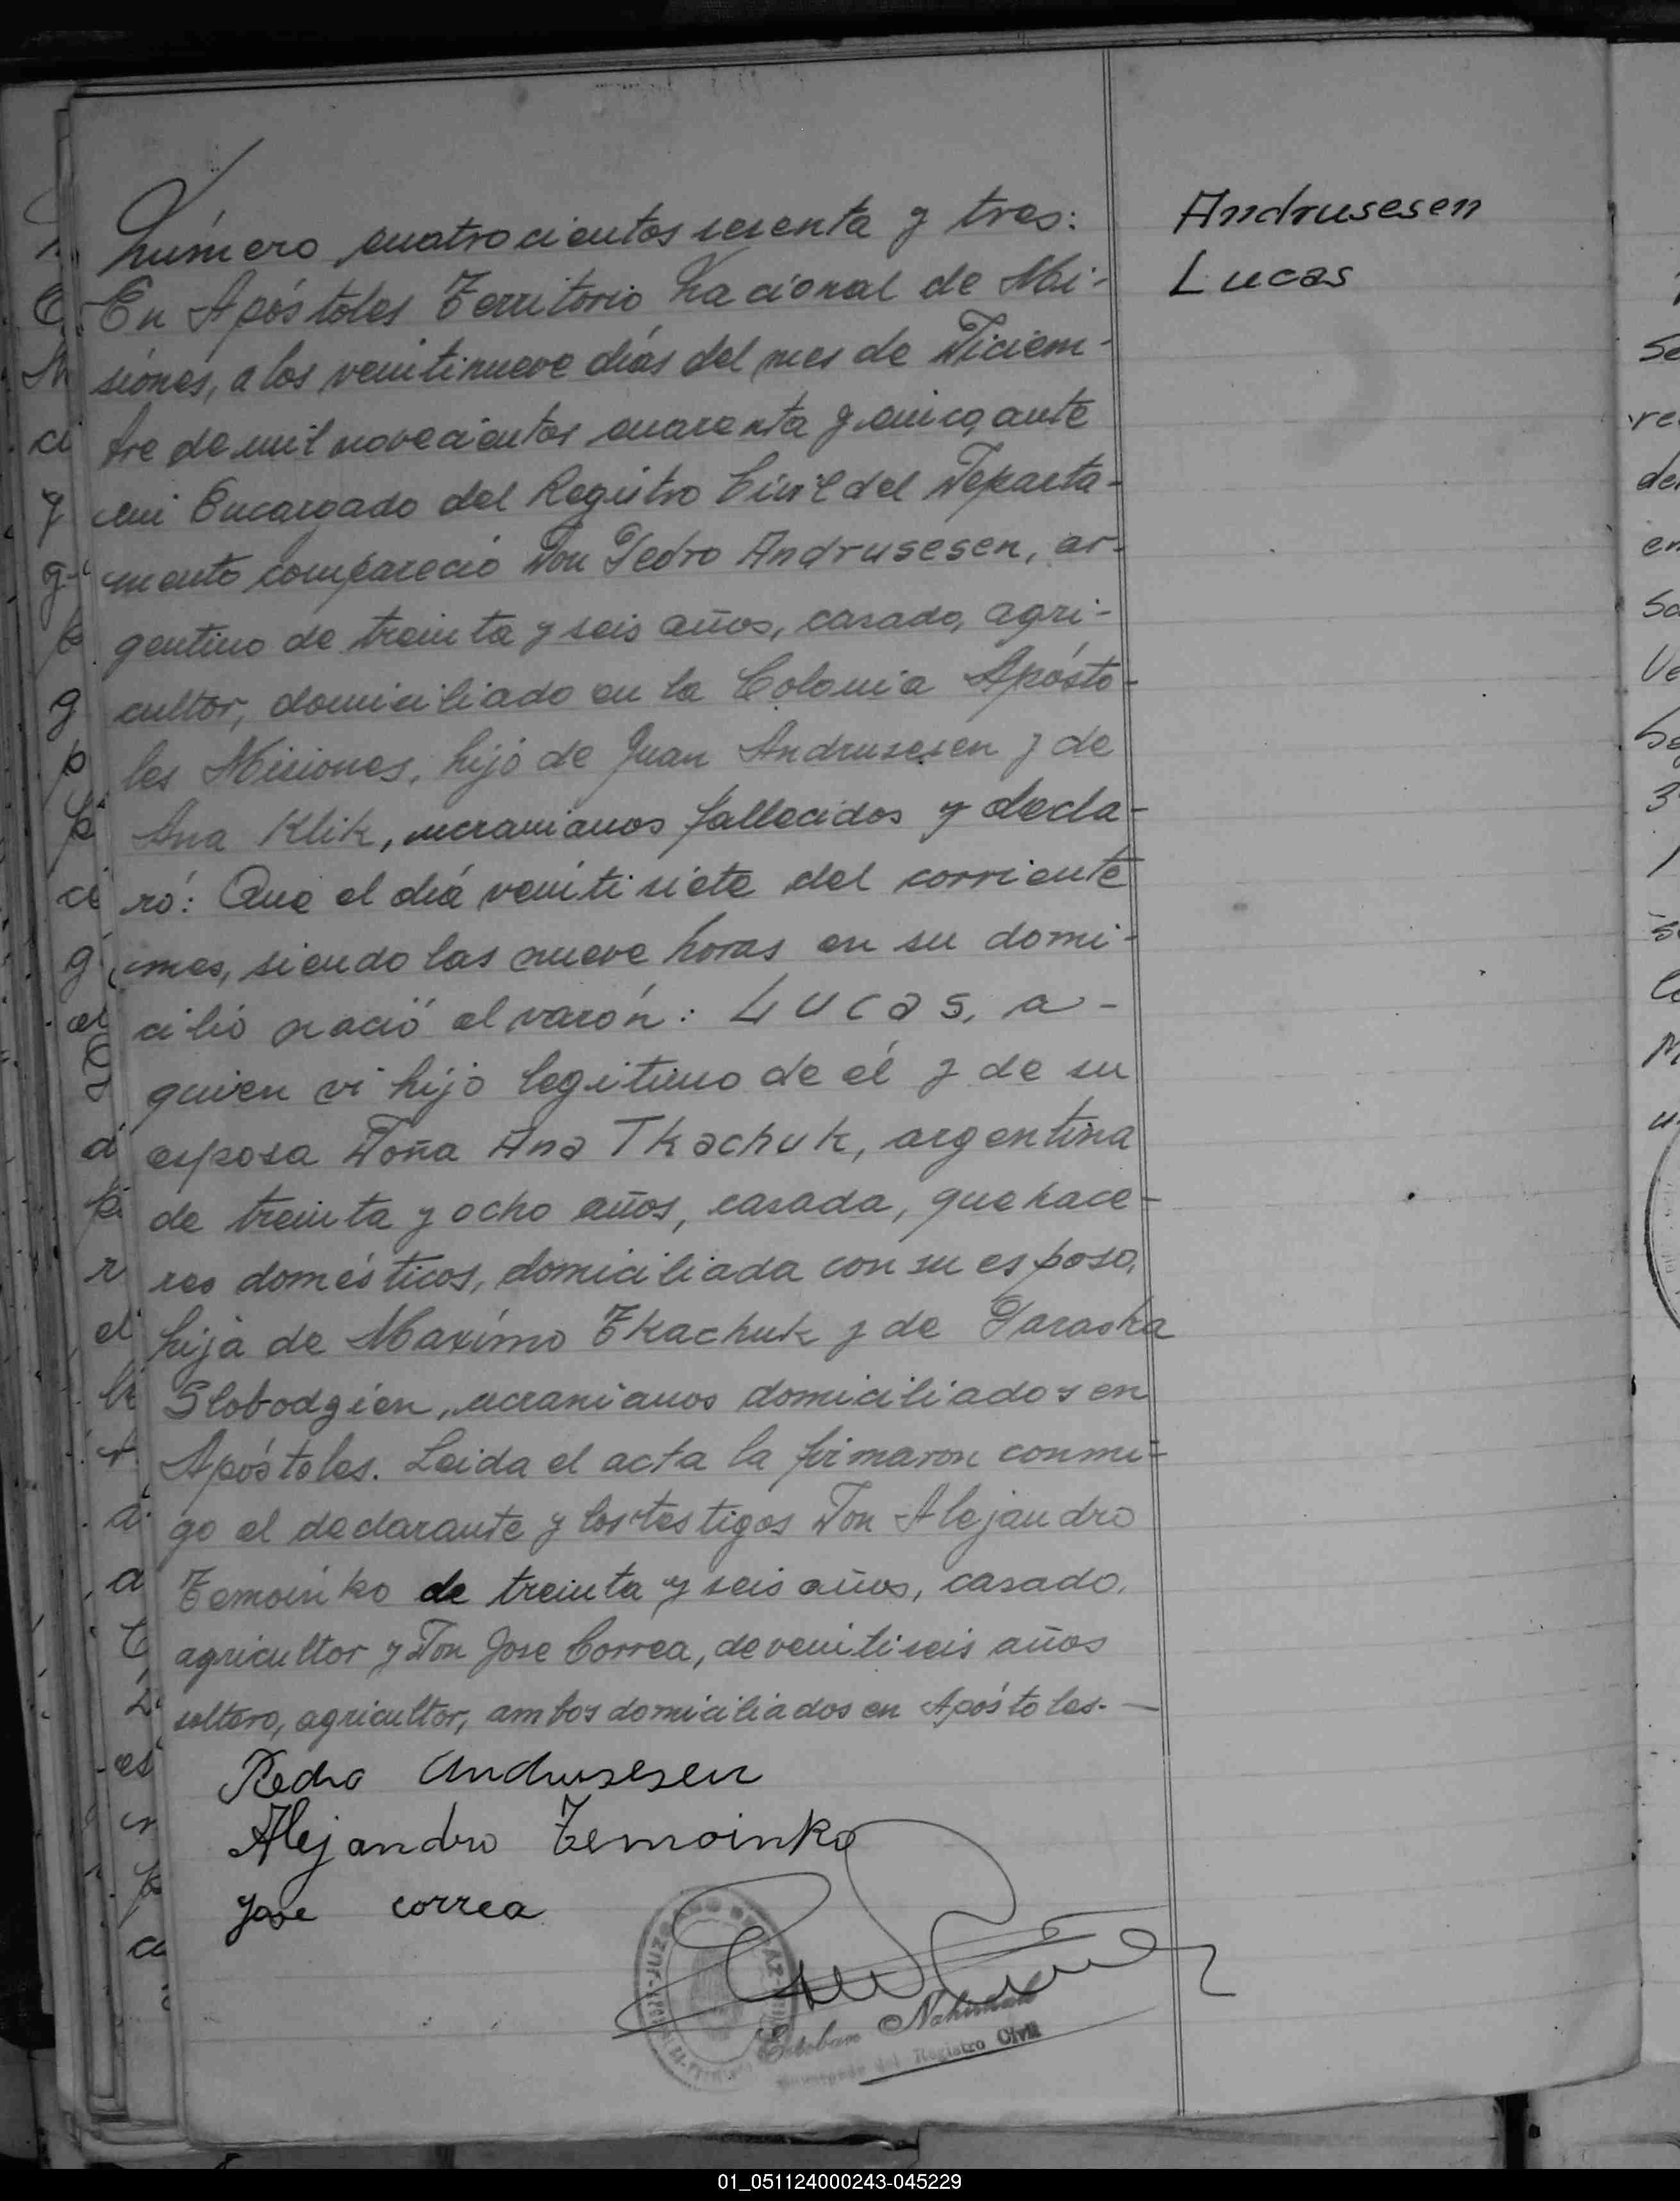 Número cuatrocientos sesenta y tres:
En Apóstoles Territorio Nacional de Mi-
siones, a los veintinueve días del mes de Diciem-
bre de mil novecientos cuarenta y cinco, ante
mi Encargado del Registro Civil del Departa-
mento compareció Don Pedro Andrusesen, ar-
gentino de treinta y seis años, casado, agri-
cultor, domiciliado en la Colonia Apósto-
les Misiones, hijo de Juan Andrusesen y de
Ana Klik, ucranianos fallecidos y decla-
ró: Que el día veintisiete del corriente
mes, siendo las nueve horas en su domi-
cilio nació el varón: Lucas, a-
quien vi hijo legítimo de él y de su
esposa Doña Ana Tkachuk, argentina
de treinta y ocho años, casada, quehace-
res domésticos, domiciliada con su esposo,
hija de Maximo Tkachuk y de Paraska
Slobodzien, ucranianos domiciliados en
Apóstoles. Leida el acta la firmaron conmi-
go el declarante y los testigos Don Alejandro
Temoinko de treinta y seis años, casado,
agricultor y Don Jose Correa, de veintiseis años
soltero, agricultor, ambos domiciliados en Apóstoles.
Pedro Andrusesen
Alejandro Temoinko
Jose correa
Esteban
Encargado del Registro Civil
Andrusesen
Lucas
01_051124000243-045229